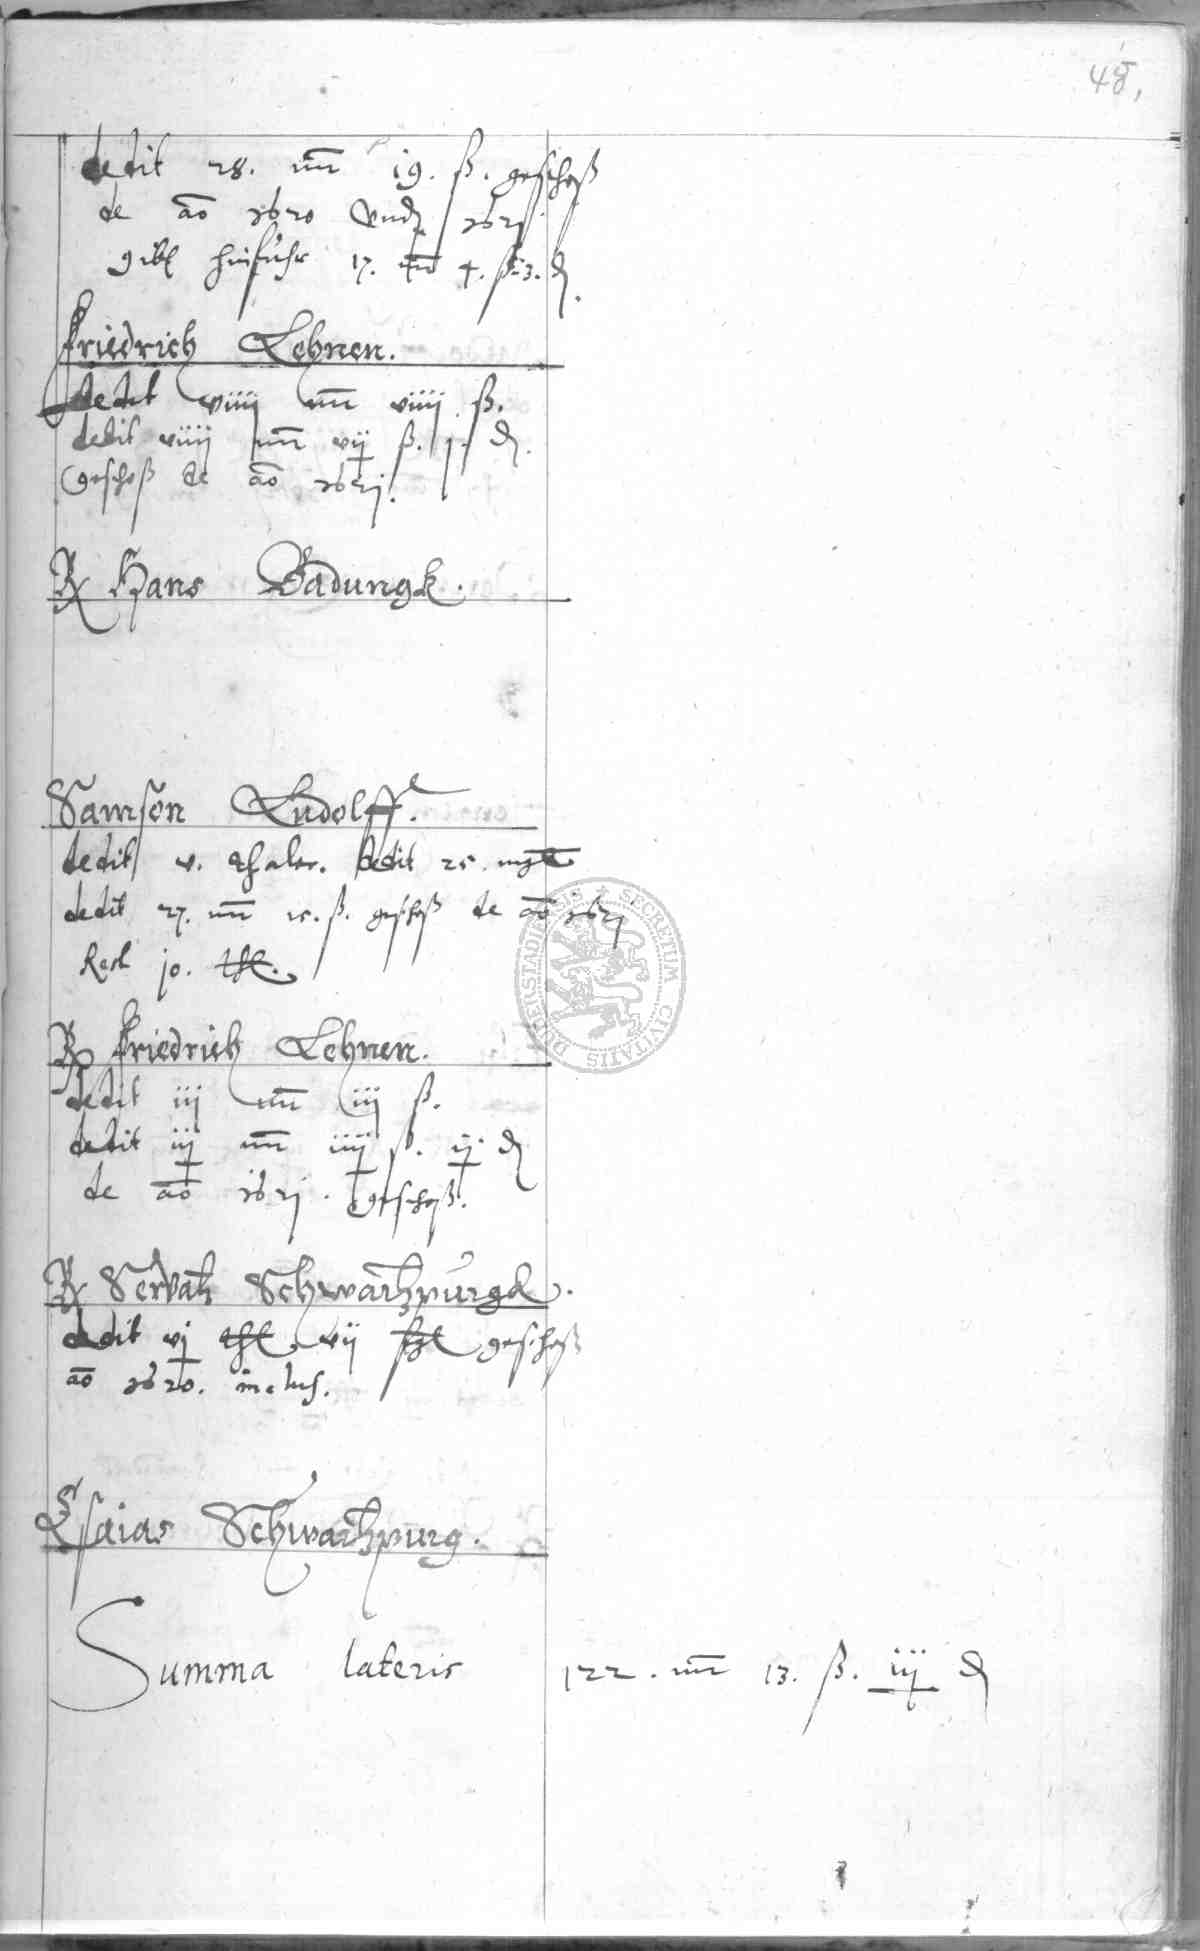 48,
dedit 28. mr 19. ß. geschoß
de ao 1620 Vnd 1621
gibt hinfuhr 17. mr 4. ß. 3. d.
Friedrich Lehnen.
dedit viiij mr viiij ß.
dedit viiij mr vij ß. j. d.
Geschoß de ao 1621.
R Hans Badungk.
Samson Ludolff.
dedit v. thaler. dedit 25.
dedit 27. mr 15. ß. geschoß de ao 1621
Rest 10. thl.
R Friedrich Lehnen.
dedit iij mr iij ß.
dedit iij mr iiij ß. ij d
de ao 1621. geschoß.
R Servatz Schwartzpurgk.
dedit vj thl. vij geschoß
ao 1620. inclus.
Esaias Schwartzpurg.
Summa lateris 122. mr 13. ß. iij d
SECRETUM CIVITATIS DUDERSTADIENSIS